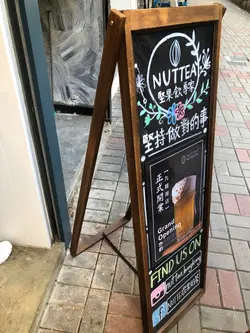 NUTTEA
堅果飲專家
堅持做對的事
正式開業
Grand
Opening
FIND US ON
nuttea.hongkong